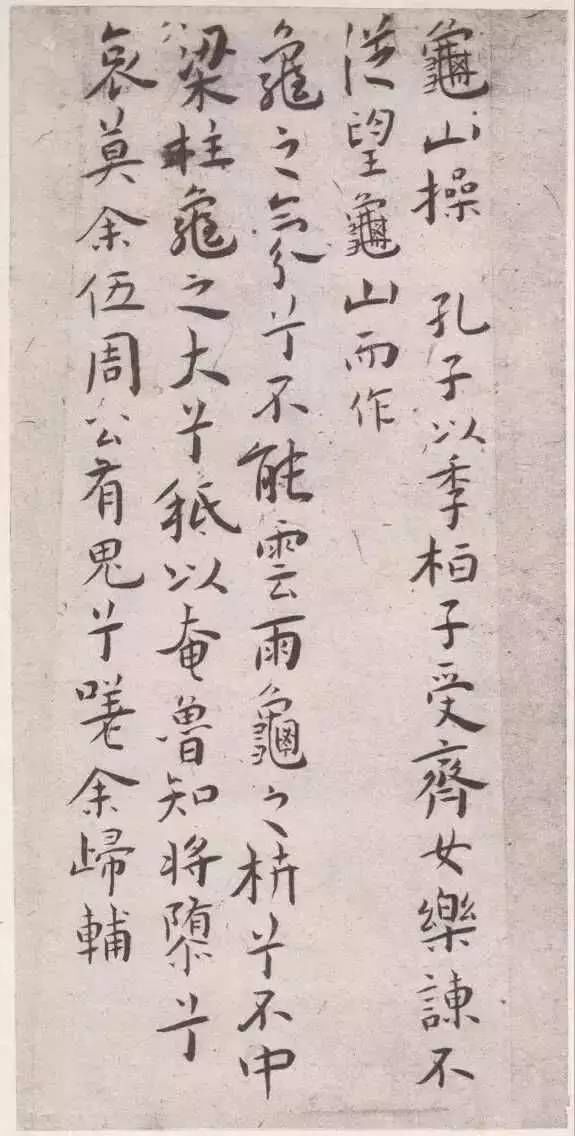 龜山操 孔子以季栢子受齊女樂諫不
從望龜山而作
龜之氛兮不能雲雨龜之枿兮不中
梁柱龜之大兮秪以奄魯知將隳兮
哀莫余伍周公有鬼兮嗟余歸輔